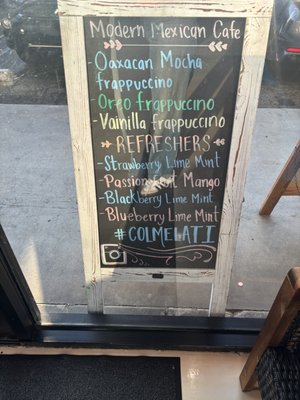 Modern Mexican Cafe
-Oaxacan Mocha
frappuccino
-Oreo frappuccino
-Vainilla frappuccino
REFRESHERS
-Strawberry Lime Mint
-Passion fruit Mango
-Blackberry Lime Mint
-Blueberry Lime Mint
#COLMELATI